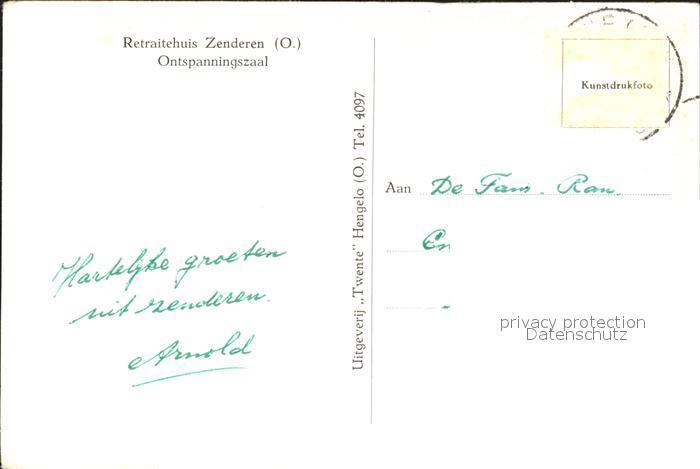 Retraitehuis Zenderen (O.)
Ontspanningszaal
Hartelijke groeten
uit zenderen.
Arnold
Uitgeverij „Twente" Hengelo (O.) Tel. 4097
Kunstdrukfoto
Aan De Fam. Ran
privacy protection
Datenschutz